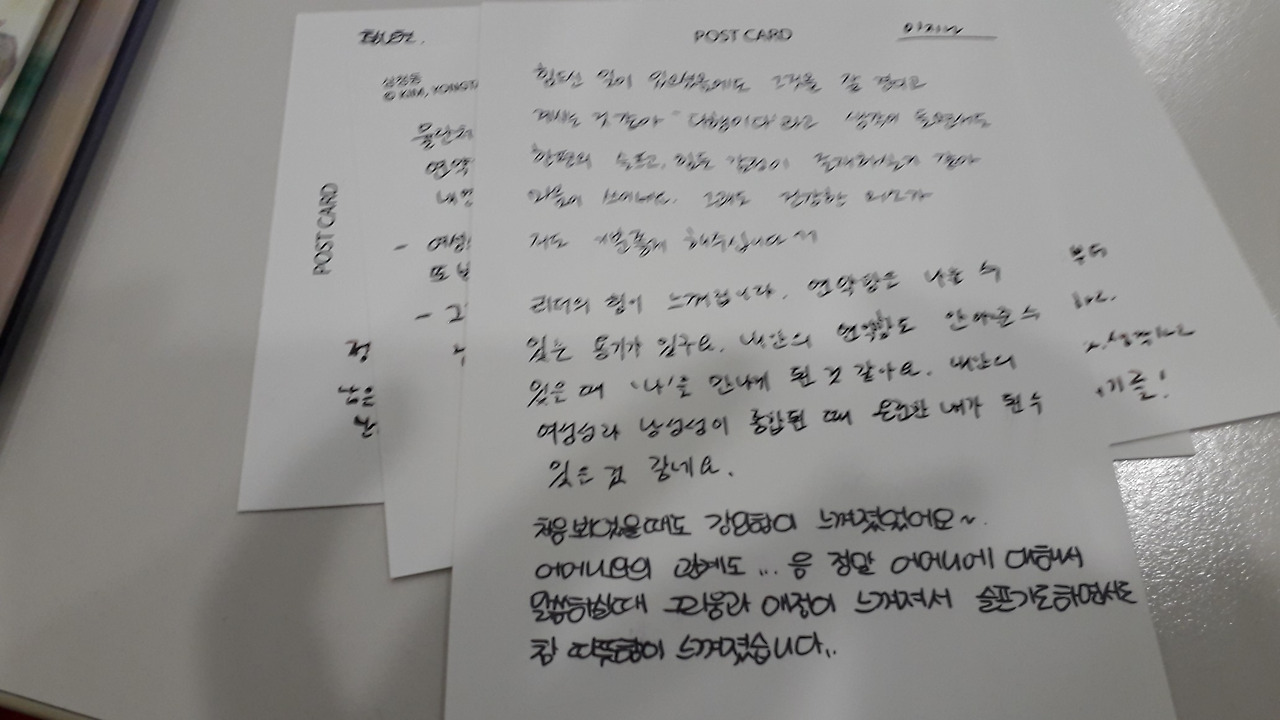 POST CARD
힘드신 일이 있으셨음에도 그것을 잘 견디고
계시는 것 같아 "다행이다"라고 생각이 들면서도
한편의 슬프고, 힘든 감정이 존재하시는거 같아
마음이 쓰이네요. 그래도 건강한 미소가
저도 기분좋게 해주십니다 ^^
리더의 힘이 느껴집니다. 연약함은 나눌 수
있는 용기가 있구요. 내안의 연약함도 안아줄 수
있을 때 '나'를 만나게 된 것 같아요. 내안의
여성성과 남성성이 통합될 때 온전한 내가 될 수
있은 것 같네요.
처음 봐었을때도 강인함이 느껴졌었어요~
어머니와의 관계도... 음 정말 어머니에 대해서
말씀하실때 그리움과 애정이 느껴져서 슬프기도하면서도
참 따뜻함이 느껴졌습니다..
부터
기를!
심정동
© KIM, YONGT
연약
- 여성
또
- 그
POST CARD
정
남은